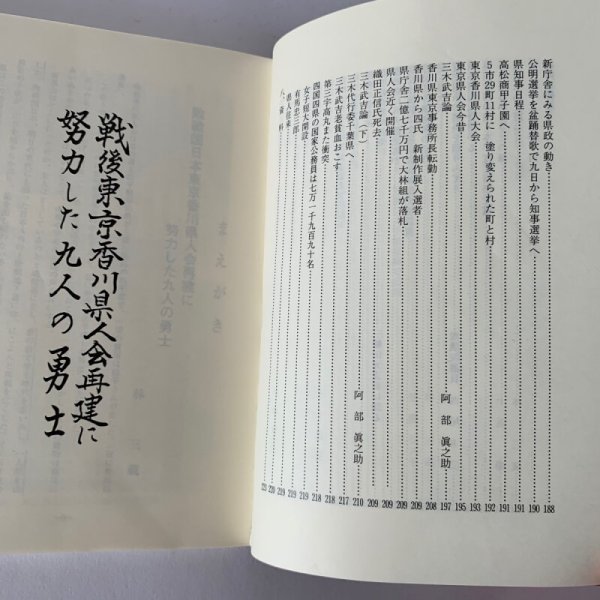 新庁舎にみる県政の動き 188
公明選挙を盆踊替歌で九日から知事選挙へ 190
県知事日程 191
高松商甲子園へ 191
5市29町11村に 塗り変えられた町と村 192
東京香川県人大会 193
東京県人会今昔 195
三木武吉論 阿部眞之助 197
香川県東京事務所長転勤 208
香川県から四氏 新制作展入選者 208
県庁舎二億七千万円で大林組が落札 209
県人会近く開催 209
織田正信氏死去 209
三木武吉論(下) 阿部眞之助 210
三木代行委千葉県へ 217
三木武吉老貧血おこす 218
第三宇高丸また衝突 218
四国四県の国家公務員は七万一千九百九十名 219
女子短大開設 219
有馬忠三郎 219
県人往来 220
戦後東京香川県人会再建に
努力した九人の勇士
まえがき
努力した九人の勇士